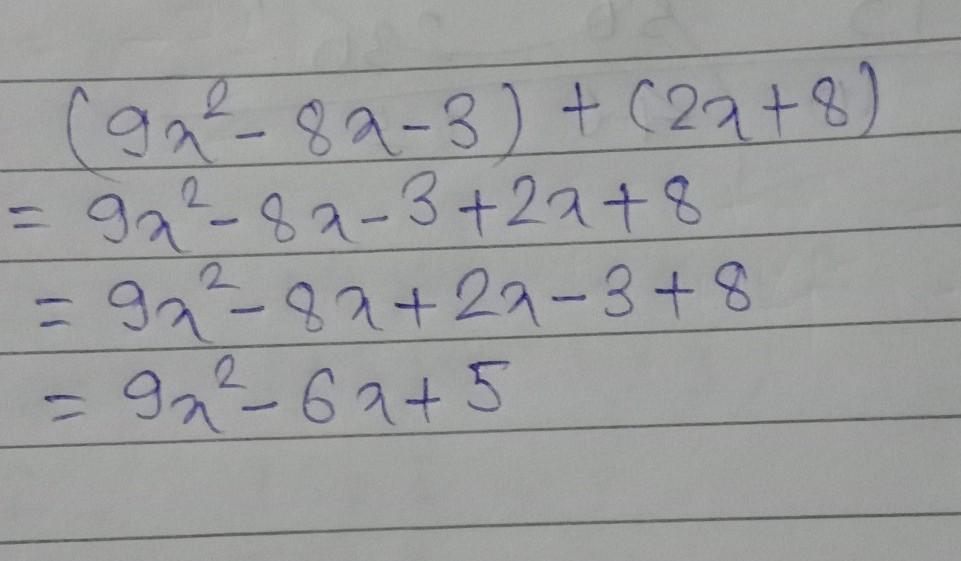 (9x² - 8x - 3) + (2x + 8)
= 9x² - 8x - 3 + 2x + 8
= 9x² - 8x + 2x - 3 + 8
= 9x² - 6x + 5